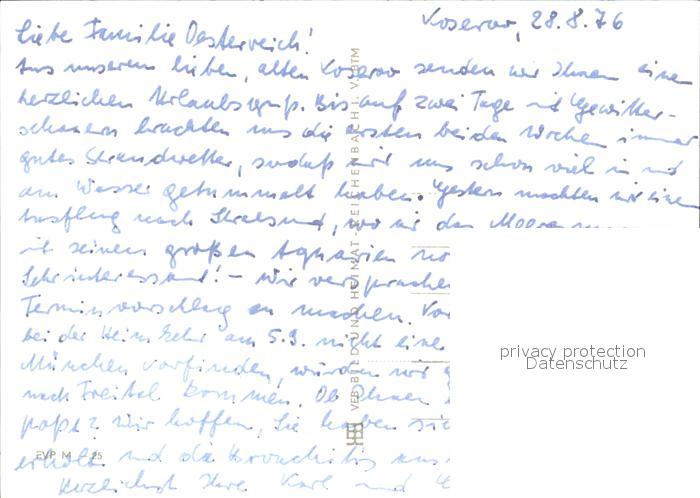 Koserow, 28.8.76
Liebe Familie Oesterreich!
Aus unserem lieben, alten Koserow senden wir Ihnen einen
herzlichen Urlaubsgruß. Bis auf zwei Tage mit Gewitter-
schauern brachten uns die ersten beiden Wochen immer
gutes Strandwetter, sodaß wir uns schon viel in und
am Wasser getummelt haben. Gestern machten wir einen
Ausflug nach Stralsund, wo wir das Meeres
mit seinen großen Aquarien
Sehr interessant! – Wir versprachen
Terminvorschlag zu machen.
bei der Heimkehr am 5.9. nicht eine
München vorfinden, würden wir
nach Freital kommen. Ob Ihnen
paßt? Wir hoffen, Sie haben sich
erholt und die Bronchitis aus
Herzlichst Ihre Karl und
VEB BILD UND HEIMAT REICHENBACH I. V. BTM
EVP M 0,25
privacy protection
Datenschutz